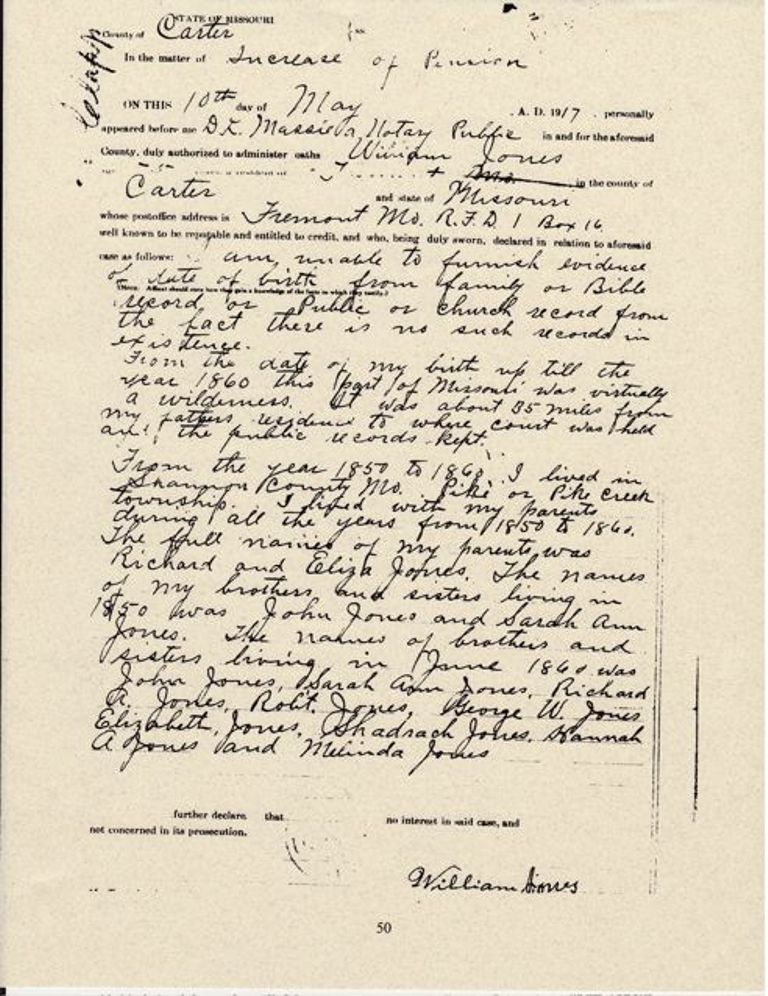 STATE OF MISSOURI
County of Carter ss
In the matter of Increase of Pension
ON THIS 10th day of May A. D. 1917 . personally
appeared before me D.L. Massie a Notary Public in and for the aforesaid
County, duly authorized to administer oaths William Jones
a resident of in the county of
Carter and state of Missouri
whose postoffice address is Fremont Mo. R.F.D. 1 Box 16.
well known to be reputable and entitled to credit, and who, being duly sworn, declared in relation to aforesaid
case as follows: am, unable to furnish evidence
of date of birth from family or Bible
record or Public or church record from
the fact there is no such records in
existence.
From the date of my birth up till the
year 1860 this part of Missouri was virtually
a wilderness. It was about 35 miles from
my fathers residence to where court was held
and the public records kept.
From the year 1850 to 1860, I lived in
Shannon County Mo. Pike or Pike Creek
township. I lived with my parents
during all the years from 1850 to 1860.
The full names of my parents was
Richard and Eliza Jones. The names
of my brothers and sisters living in
1850 was John Jones and Sarah Ann
Jones. The names of brothers and
sisters living in June 1860 was
John Jones, Sarah Ann Jones, Richard
A. Jones, Robt. Jones, George W. Jones
Elizabeth Jones, Shadrach Jones, Hannah
A Jones and Melinda Jones
further declare that no interest in said case, and
not concerned in its prosecution.
William Jones
50